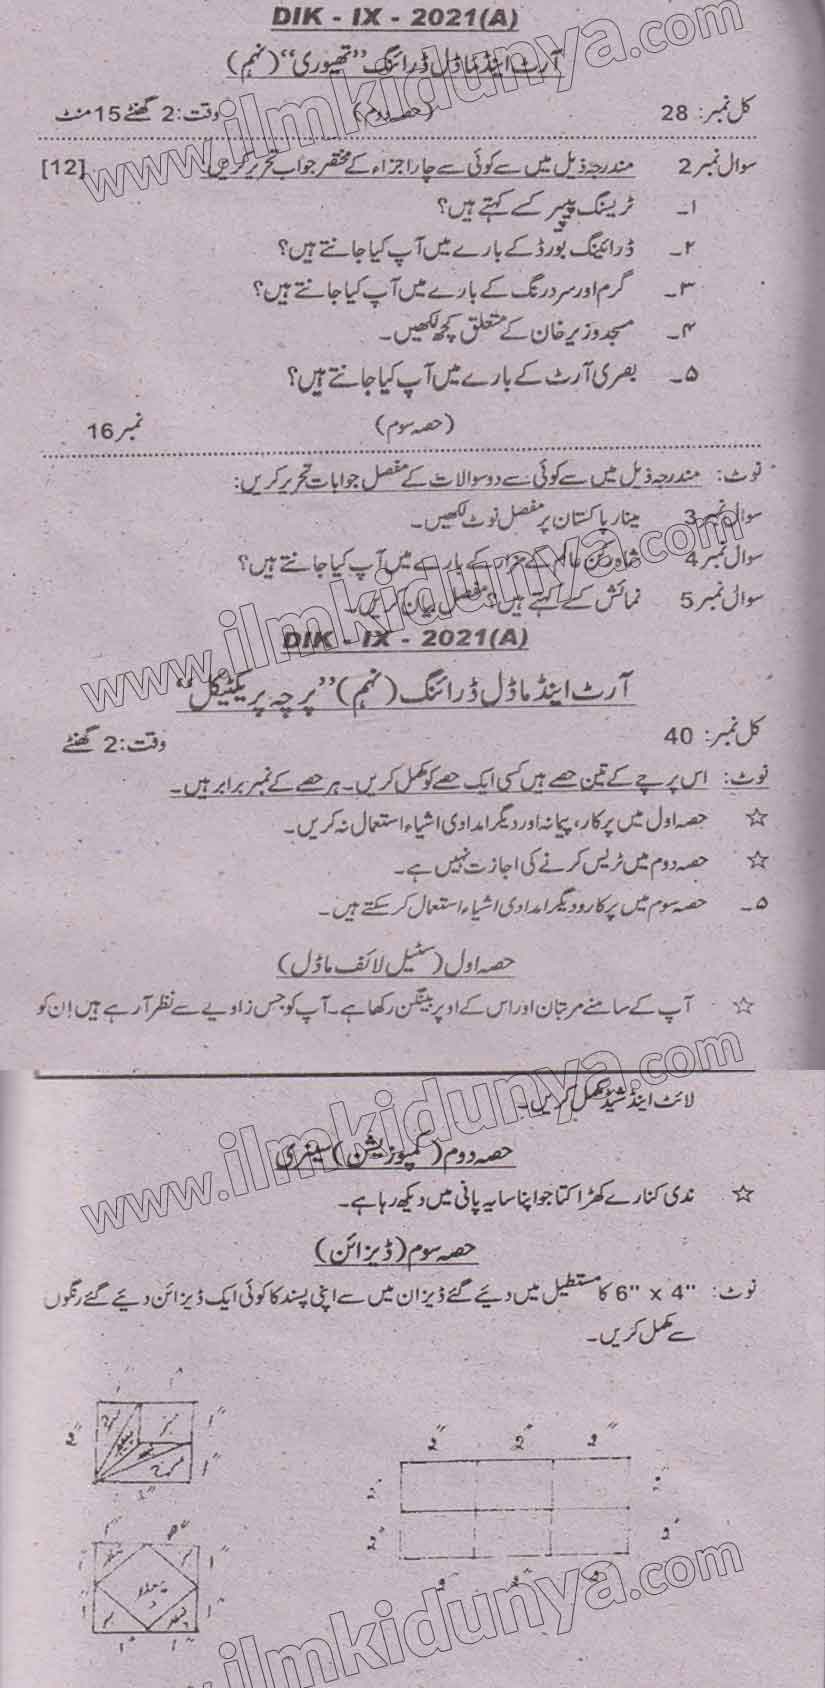 DIK - IX - 2021(A)
آرٹ اینڈ ماڈل ڈرائنگ ”تھیوری“ (نہم)
کل نمبر: 28 (حصہ دوم) وقت: 2 گھنٹے 15 منٹ
سوال نمبر 2 مندرجہ ذیل میں سے کوئی سے چار اجزاء کے مختصر جواب تحریر کریں۔ [12]
۱۔ ٹریسنگ پیپر کسے کہتے ہیں؟
۲۔ ڈرائینگ بورڈ کے بارے میں آپ کیا جانتے ہیں؟
۳۔ گرم اور سرد رنگ کے بارے میں آپ کیا جانتے ہیں؟
۴۔ مسجد وزیر خان کے متعلق کچھ لکھیں۔
۵۔ بصری آرٹ کے بارے میں آپ کیا جانتے ہیں؟
(حصہ سوم) نمبر 16
نوٹ: مندرجہ ذیل میں سے کوئی سے دو سوالات کے مفصل جوابات تحریر کریں:
سوال نمبر 3 مینار پاکستان پر مفصل نوٹ لکھیں۔
سوال نمبر 4 شاہ رکن عالم کے مزار کے بارے میں آپ کیا جانتے ہیں؟
سوال نمبر 5 نمائش کسے کہتے ہیں؟ مفصل بیان کریں۔
DIK - IX - 2021(A)
آرٹ اینڈ ماڈل ڈرائنگ (نہم) ”پرچہ پریکٹیکل“
کل نمبر: 40 وقت: 2 گھنٹے
نوٹ: اس پرچے کے تین حصے ہیں کسی ایک حصے کو مکمل کریں۔ ہر حصے کے نمبر برابر ہیں۔
☆ حصہ اول میں پرکار، پیمانہ اور دیگر امدادی اشیاء استعمال نہ کریں۔
☆ حصہ دوم میں ٹریس کرنے کی اجازت نہیں ہے۔
۵۔ حصہ سوم میں پرکار و دیگر امدادی اشیاء استعمال کر سکتے ہیں۔
حصہ اول (سٹیل لائف ماڈل)
☆ آپ کے سامنے مرتبان اور اس کے اوپر بینگن رکھا ہے۔ آپ کو جس زاویے سے نظر آرہے ہیں اِن کو
لائٹ اینڈ شیڈ مکمل کریں۔
حصہ دوم (کمپوزیشن) سینری
☆ ندی کنارے کھڑا کتا جو اپنا سایہ پانی میں دیکھ رہا ہے۔
حصہ سوم (ڈیزائن)
نوٹ: 6" x 4" کا مستطیل میں دیئے گئے ڈیزان میں سے اپنی پسند کا کوئی ایک ڈیزائن دیئے گئے رنگوں
سے مکمل کریں۔
2" 1" 1"
2" 2" 2"
2" 2"
1" 1"
www.ilmkidunya.com
www.ilmkidunya.com
www.ilmkidunya.com
www.ilmkidunya.com